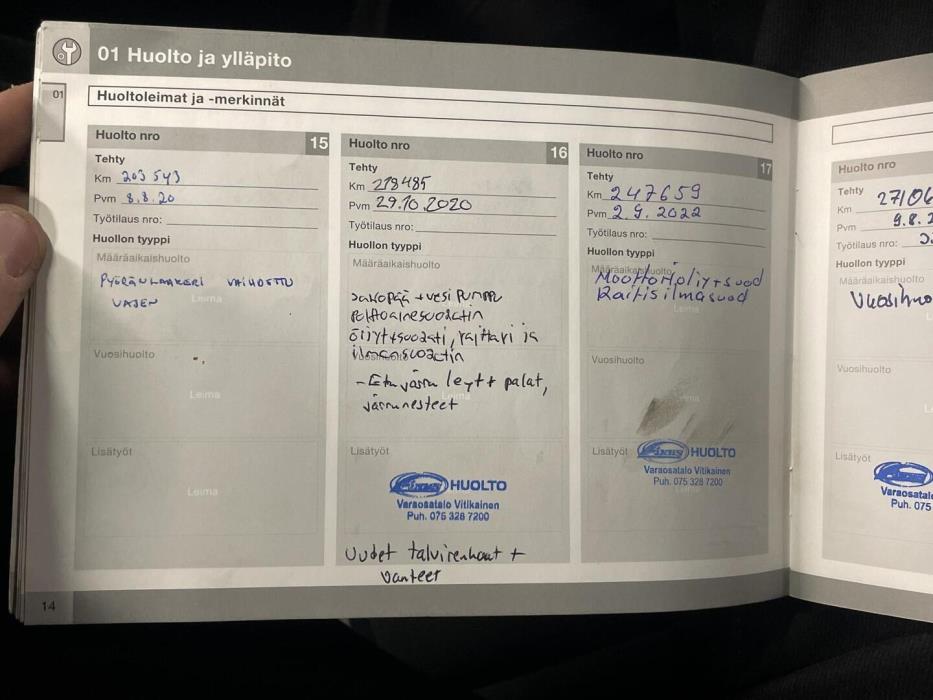 01 Huolto ja ylläpito
01
Huoltoleimat ja -merkinnät
Huolto nro 15
Tehty
Km 203 543
Pvm 8.8.20
Työtilaus nro:
Huollon tyyppi
Määräaikaishuolto
PYÖRÄNLAAKERI VAIHDETTU
VASEN
Leima
Vuosihuolto
Leima
Lisätyöt
Leima
Huolto nro 16
Tehty
Km 218485
Pvm 29.10.2020
Työtilaus nro:
Huollon tyyppi
Määräaikaishuolto
Jakopää + vesi Pumppu
Polttoainesuodatin
öljyt+suodati, rajttari ja
ilmansuodatin
Vuosihuolto
- Etu jarru levyt + palat,
Leima
jarrunesteet
Lisätyöt
HUOLTO
Varaosatalo Vitikainen
Puh. 075 328 7200
Uudet talvirenkaat +
vanteet
Huolto nro 17
Tehty
Km 247659
Pvm 2.9.2022
Työtilaus nro:
Huollon tyyppi
Määräaikaishuolto
Moottoriöljy+suod
Raitisilmasuod
Leima
Vuosihuolto
Leima
Lisätyöt
HUOLTO
Varaosatalo Vitikainen
Puh. 075 328 7200
Leima
Huolto nro
Tehty
Km 27106
Pvm 9.8.2
Työtilaus nro:
Huollon tyyppi
Määräaikaishuolto
Vuosihuo
Vuosihuolto
Lisätyöt
Varaosatal
Puh. 075
14